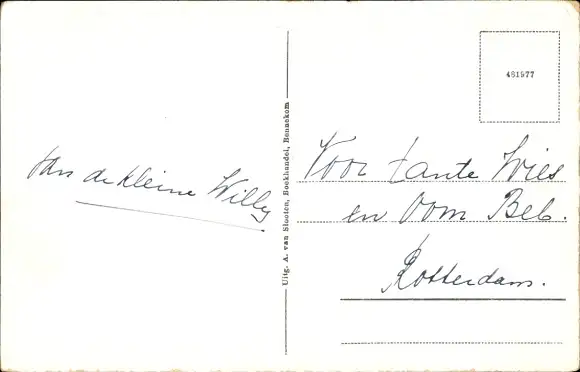 van de kleine Willy
Uitg. A. van Slooten, Boekhandel, Bennekom
461577
Voor tante Wies
en Oom Beb.
Rotterdam.